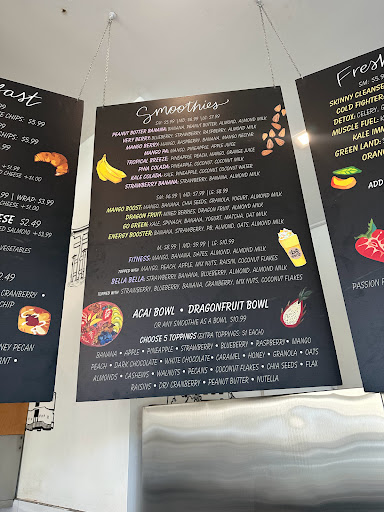 east
CHIPS. $5.99
CHIPS. $5.99
+$1.99
CHEESE +$1.00
.99 | WRAP: $3.99
CHEESE +$1.00
ESE $2.49
SALMON $3.99
VEGETABLES
$2.49
CRANBERRY •
CHIP
NEY PECAN
ANT •
Smoothies
SM: $5.99 | MD: $6.99 | LG: $7.99
PEANUT BUTTER BANANA: BANANA, PEANUT BUTTER, ALMOND, ALMOND MILK
VERY BERRY: BLUEBERRY, STRAWBERRY, RASPBERRY, ALMOND MILK
MANGO BERRY: MANGO, RASPBERRY, BANANA, MANGO NECTAR
MANGO PA: MANGO, PINEAPPLE, APPLE JUICE
TROPICAL BREEZE: PINEAPPLE, PEACH, MANGO, ORANGE JUICE
PINA COLADA: PINEAPPLE, COCONUT, COCONUT MILK
KALE COLADA: KALE, PINEAPPLE, COCONUT, COCONUT WATER
STRAWBERRY BANANA: STRAWBERRY, BANANA, ALMOND MILK
SM: $6.99 | MD: $7.99 | LG: $8.99
MANGO BOOST: MANGO, BANANA, CHIA SEEDS, GRANOLA, YOGURT, ALMOND MILK
DRAGON FRUIT: MIXED BERRIES, DRAGON FRUIT, ALMOND MILK
GO GREEN: KALE, SPINACH, BANANA, YOGURT, MATCHA, OAT MILK
ENERGY BOOSTER: BANANA, STRAWBERRY, PB, ALMOND, OATS, ALMOND MILK
M: $8.99 | MD: $9.99 | LG: $10.99
FITNESS: MANGO, BANANA, DATES, ALMOND, ALMOND MILK
TOPPED WITH MANGO, PEACH, APPLE, MIX NUTS, RAISIN, COCONUT FLAKES
BELLA BELLA: STRAWBERRY, BANANA, BLUEBERRY, ALMOND, ALMOND MILK
TOPPED WITH STRAWBERRY, BLUEBERRY, BANANA, CRANBERRY, MIX NUTS, COCONUT FLAKES
ACAI BOWL • DRAGONFRUIT BOWL
OR ANY SMOOTHIE AS A BOWL $10.99
CHOOSE 5 TOPPINGS (EXTRA TOPPINGS: $1 EACH)
BANANA • APPLE • PINEAPPLE • STRAWBERRY • BLUEBERRY • RASPBERRY • MANGO
PEACH • DARK CHOCOLATE • WHITE CHOCOLATE • CARAMEL • HONEY • GRANOLA • OATS
ALMONDS • CASHEWS • WALNUTS • PECANS • COCONUT FLAKES • CHIA SEEDS • FLAX
RAISINS • DRY CRANBERRY • PEANUT BUTTER • NUTELLA
Fresh
SM: $5.
SKINNY CLEANSE
COLD FIGHTER
DETOX: CELERY, G
MUSCLE FUEL:
KALE IMM
GREEN LAND:
ORAN
ADD
PASSION F